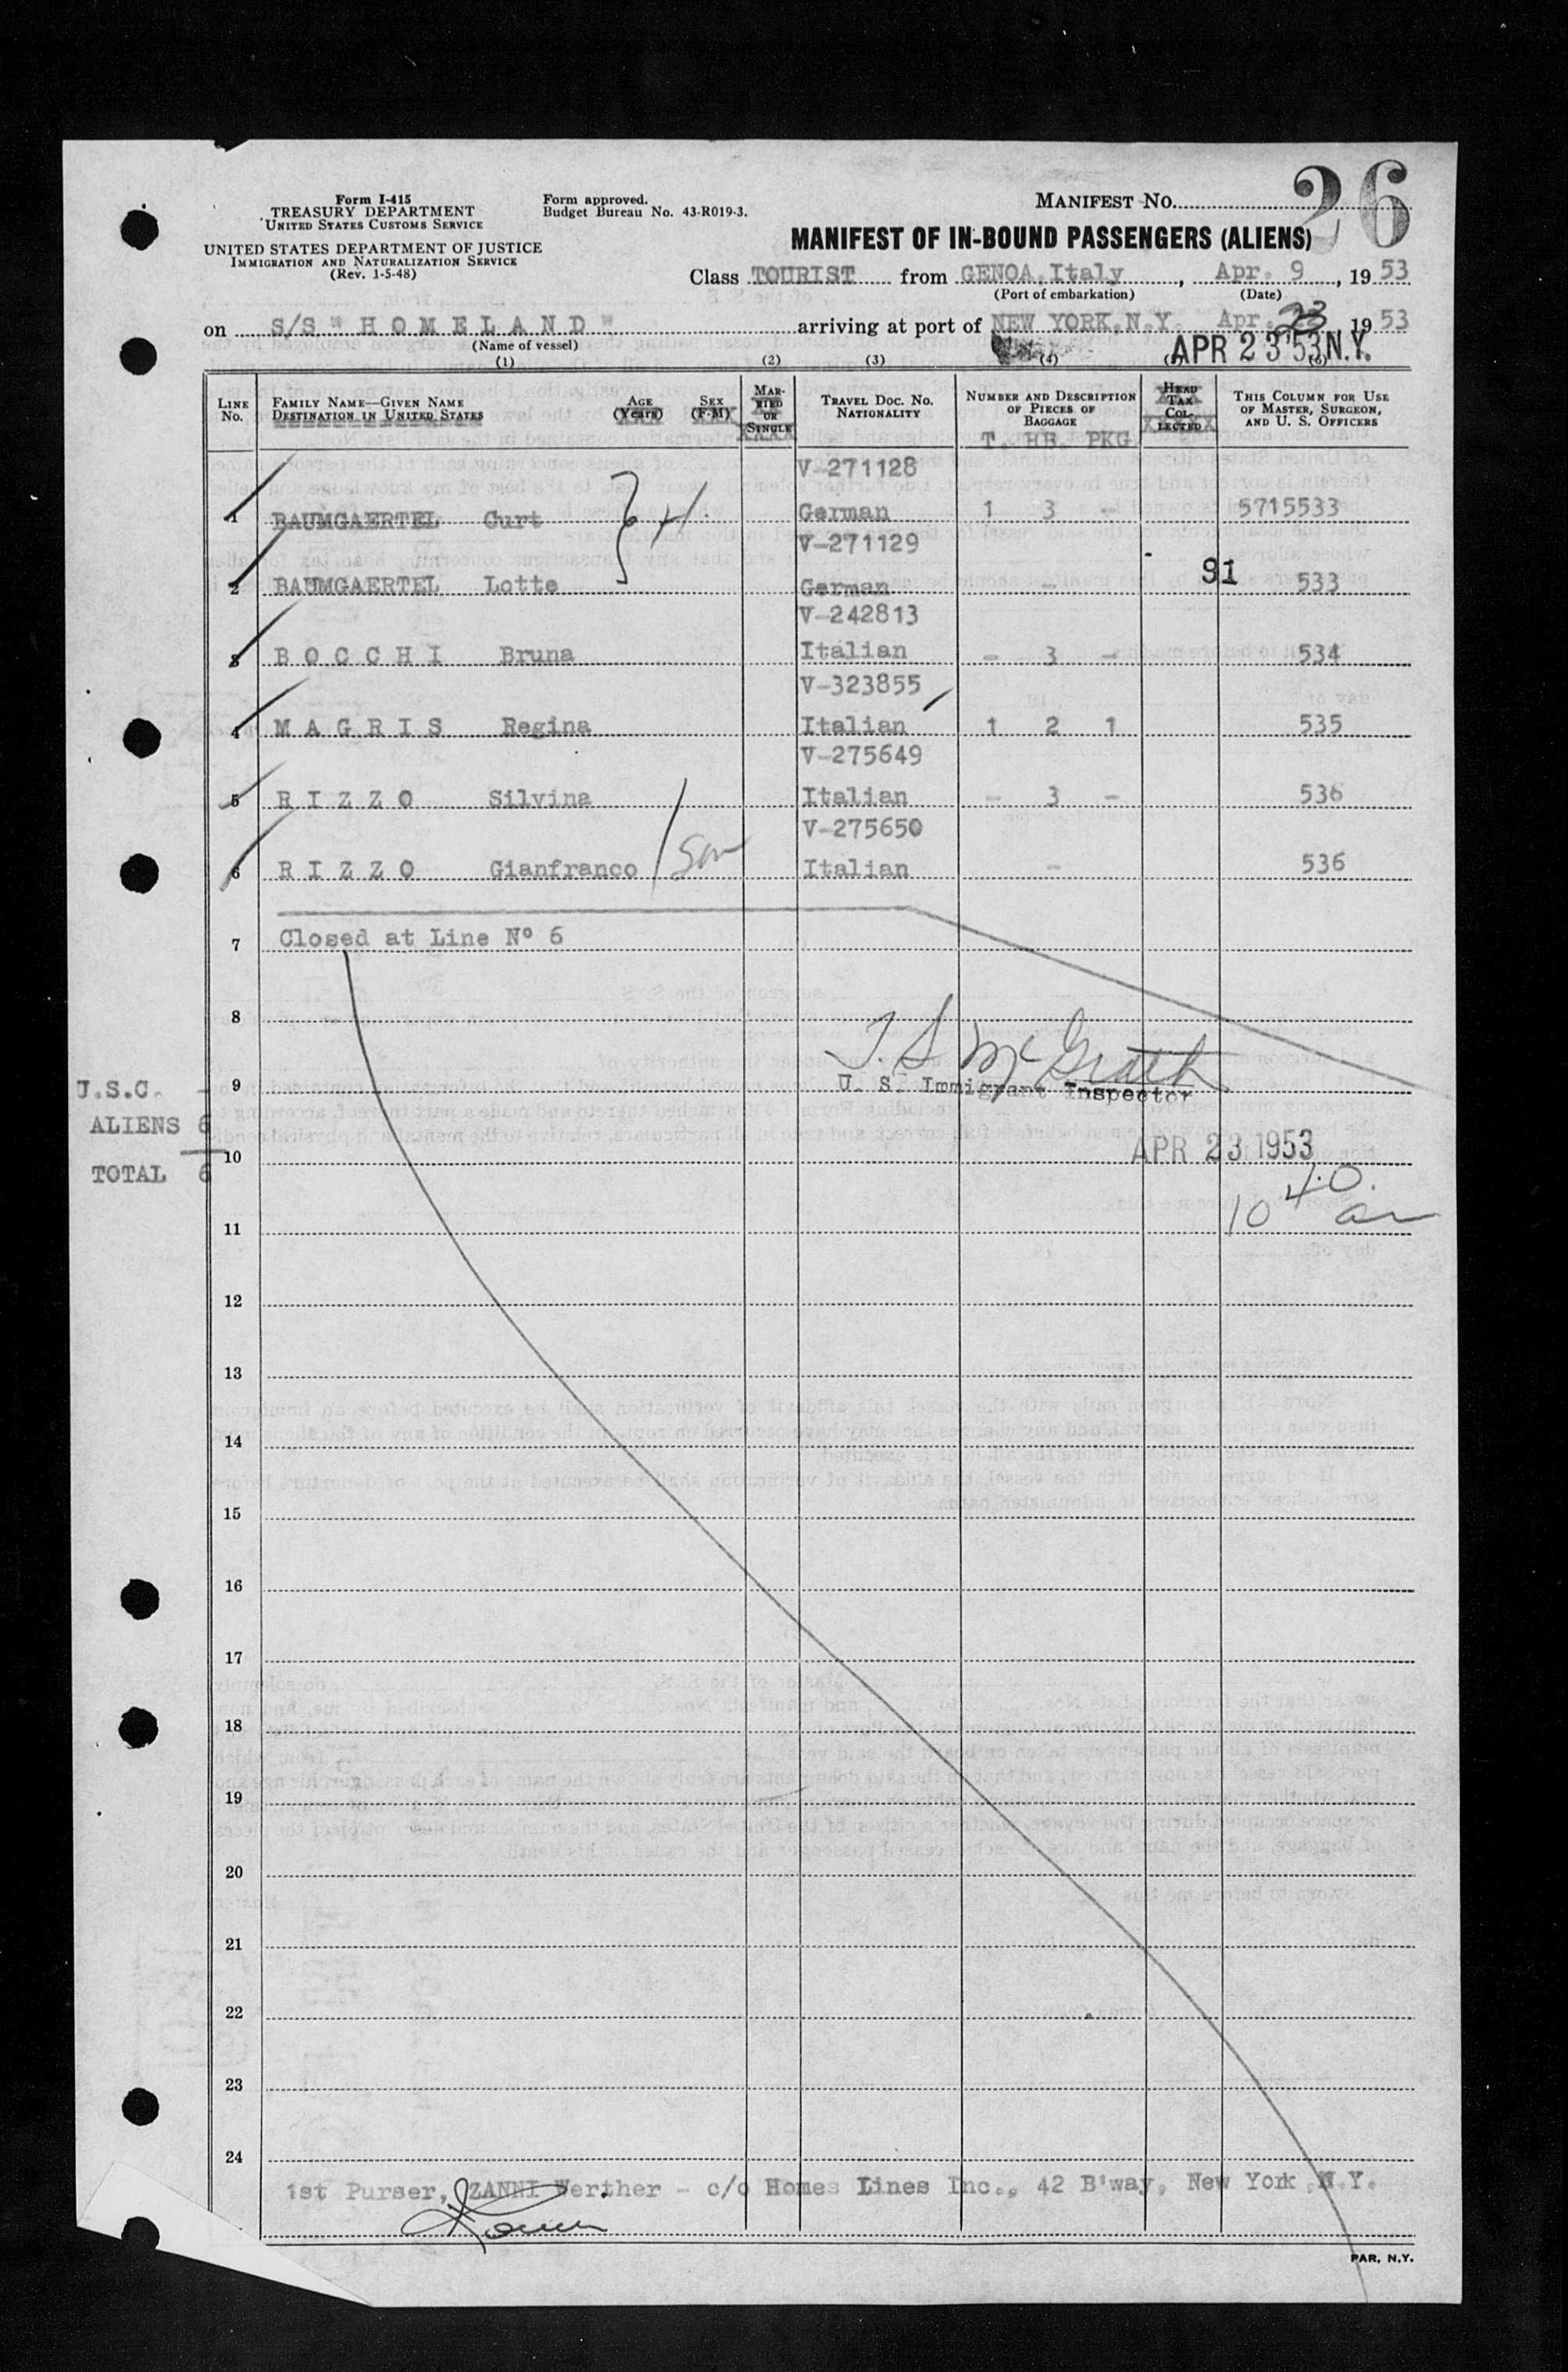 Form I-415
TREASURY DEPARTMENT
UNITED STATES CUSTOMS SERVICE
UNITED STATES DEPARTMENT OF JUSTICE
IMMIGRATION AND NATURALIZATION SERVICE
(Rev. 1-5-48)
Form approved.
Budget Bureau No. 43-R019-3.
MANIFEST NO. 26
MANIFEST OF IN-BOUND PASSENGERS (ALIENS)
Class TOURIST from GENOA, Italy, Apr. 9, 1953
(Port of embarkation) (Date)
on S/S "HOMELAND" arriving at port of NEW YORK, N.Y. Apr. 23 1953
(Name of vessel)
APR 23 '53 N.Y.
(1) (2) (3) (4)
LINE No. FAMILY NAME—GIVEN NAME DESTINATION IN UNITED STATES AGE (Years) SEX (F-M) MARRIED OR SINGLE TRAVEL DOC. NO. NATIONALITY NUMBER AND DESCRIPTION OF PIECES OF BAGGAGE HEAD TAX COLLECTED THIS COLUMN FOR USE OF MASTER, SURGEON, AND U. S. OFFICERS
T. HB. PKG
V-271128
1 BAUMGAERTEL Curt German 1 3 - 5715533
V-271129
91
2 BAUMGAERTEL Lotte German - 533
V-242813
3 BOCCHI Bruna Italian - 3 - 534
V-323855
4 MAGRIS Regina Italian 1 2 1 535
V-275649
5 RIZZO Silvina Italian - 3 - 536
V-275650
6 RIZZO Gianfranco son Italian - 536
7 Closed at Line Nº 6
8
T. S. McGrath
U.S.C. -
9 U. S. Immigrant Inspector
ALIENS 6
10 APR 23 1953
TOTAL 6
10 40. am
11
12
13
14
15
16
17
18
19
20
21
22
23
24
1st Purser, ZANNI Werther - c/o Homes Lines Inc., 42 B'way, New York, N.Y.
PAR. N.Y.